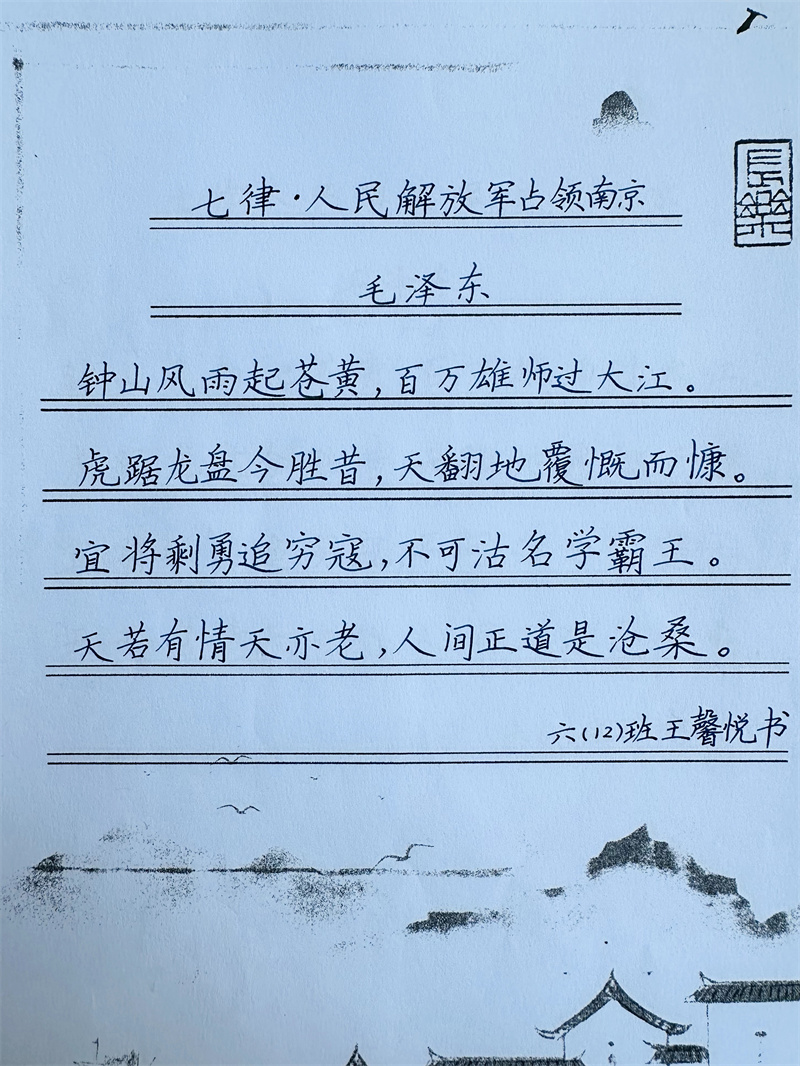 七律·人民解放军占领南京
毛泽东
钟山风雨起苍黄,百万雄师过大江。
虎踞龙盘今胜昔,天翻地覆慨而慷。
宜将剩勇追穷寇,不可沽名学霸王。
天若有情天亦老,人间正道是沧桑。
六(12)班王馨悦书
长乐